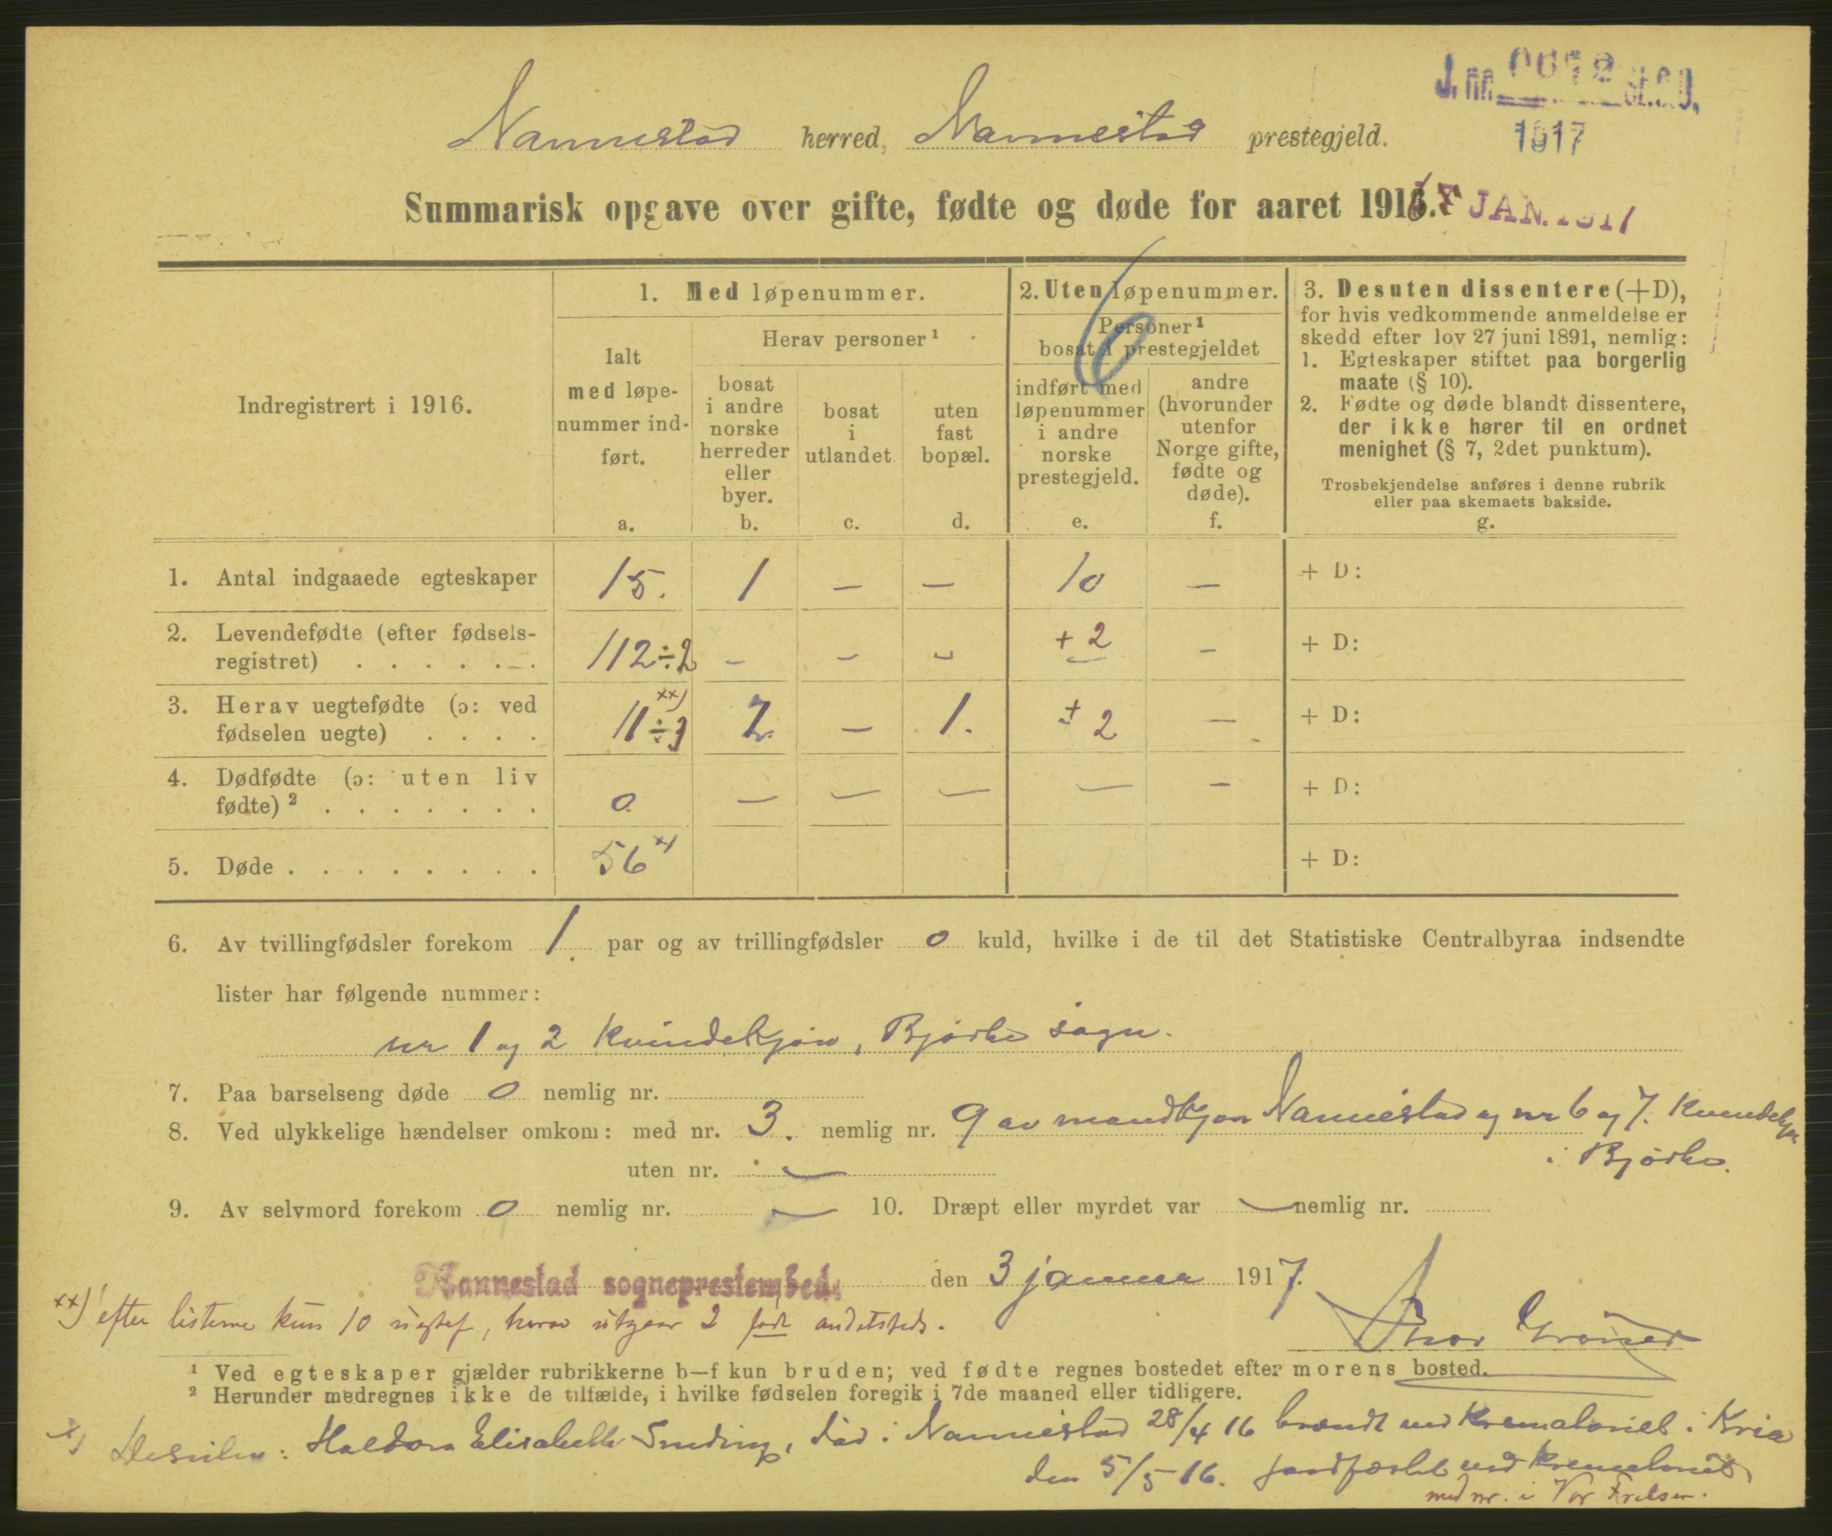 J. no. St. C. B.
1917
Nannestad herred, Nannestad prestegjeld.
Summarisk opgave over gifte, fødte og døde for aaret 1916.
JAN. 1917
6
Indregistrert i 1916.
1. Med løpenummer.
Ialt
med løpe-
nummer ind-
ført.
a.
Herav personer ¹
bosat
i andre
norske
herreder
eller
byer.
b.
bosat
i
utlandet
c.
uten
fast
bopæl.
d.
2. Uten løpenummer.
Personer ¹
bosat i prestegjeldet
indført med
løpenummer
i andre
norske
prestegjeld.
e.
andre
(hvorunder
utenfor
Norge gifte,
fødte og
døde).
f.
3. Desuten dissentere (+D),
for hvis vedkommende anmeldelse er
skedd efter lov 27 juni 1891, nemlig:
1. Egteskaper stiftet paa borgerlig
maate (§ 10).
2. Fødte og døde blandt dissentere,
der ikke hører til en ordnet
menighet (§ 7, 2det punktum).
Trosbekjendelse anføres i denne rubrik
eller paa skemaets bakside.
g.
1. Antal indgaaede egteskaper 15. 1 — — 10 — + D:
2. Levendefødte (efter fødsels-
registret) . . . . . . . 112 ÷ 2 – – – + 2 – + D:
3. Herav uegtefødte (ɔ: ved
fødselen uegte) . . . . 11 ÷ 1 xx) 2 — 1. + 2 — + D:
4. Dødfødte (ɔ: uten liv
fødte) ² . . . . . . . 0 — — — — — + D:
5. Døde . . . . . . . . 56 x) + D:
6. Av tvillingfødsler forekom 1. par og av trillingfødsler 0 kuld, hvilke i de til det Statistiske Centralbyraa indsendte
lister har følgende nummer:
nr 1 og 2 kvindekjøn, Bjørke sogn.
7. Paa barselseng døde 0 nemlig nr.
8. Ved ulykkelige hændelser omkom: med nr. 3. nemlig nr. 9 av mandkjøn Nannestad og nr 6 og 7. kvindekjøn
i Bjørke.
uten nr. —
9. Av selvmord forekom 0 nemlig nr. — 10. Dræpt eller myrdet var — nemlig nr.
Nannestad sogneprestembede den 3 januar 1917.
xx) efter listerne kun 10 uegtef, herav utgaar 2 født andetsteds.
¹ Ved egteskaper gjælder rubrikkerne b—f kun bruden; ved fødte regnes bostedet efter morens bosted.
² Herunder medregnes ikke de tilfælde, i hvilke fødselen foregik i 7de maaned eller tidligere.
x) Desuten: Haldora Elisabeth Smding, død i Nannestad 28/4 16 brændt ved Krematoriet i Kria
den 5/5 16. jordfæstet ved krematoriet
med nr. i Vor Frelser.